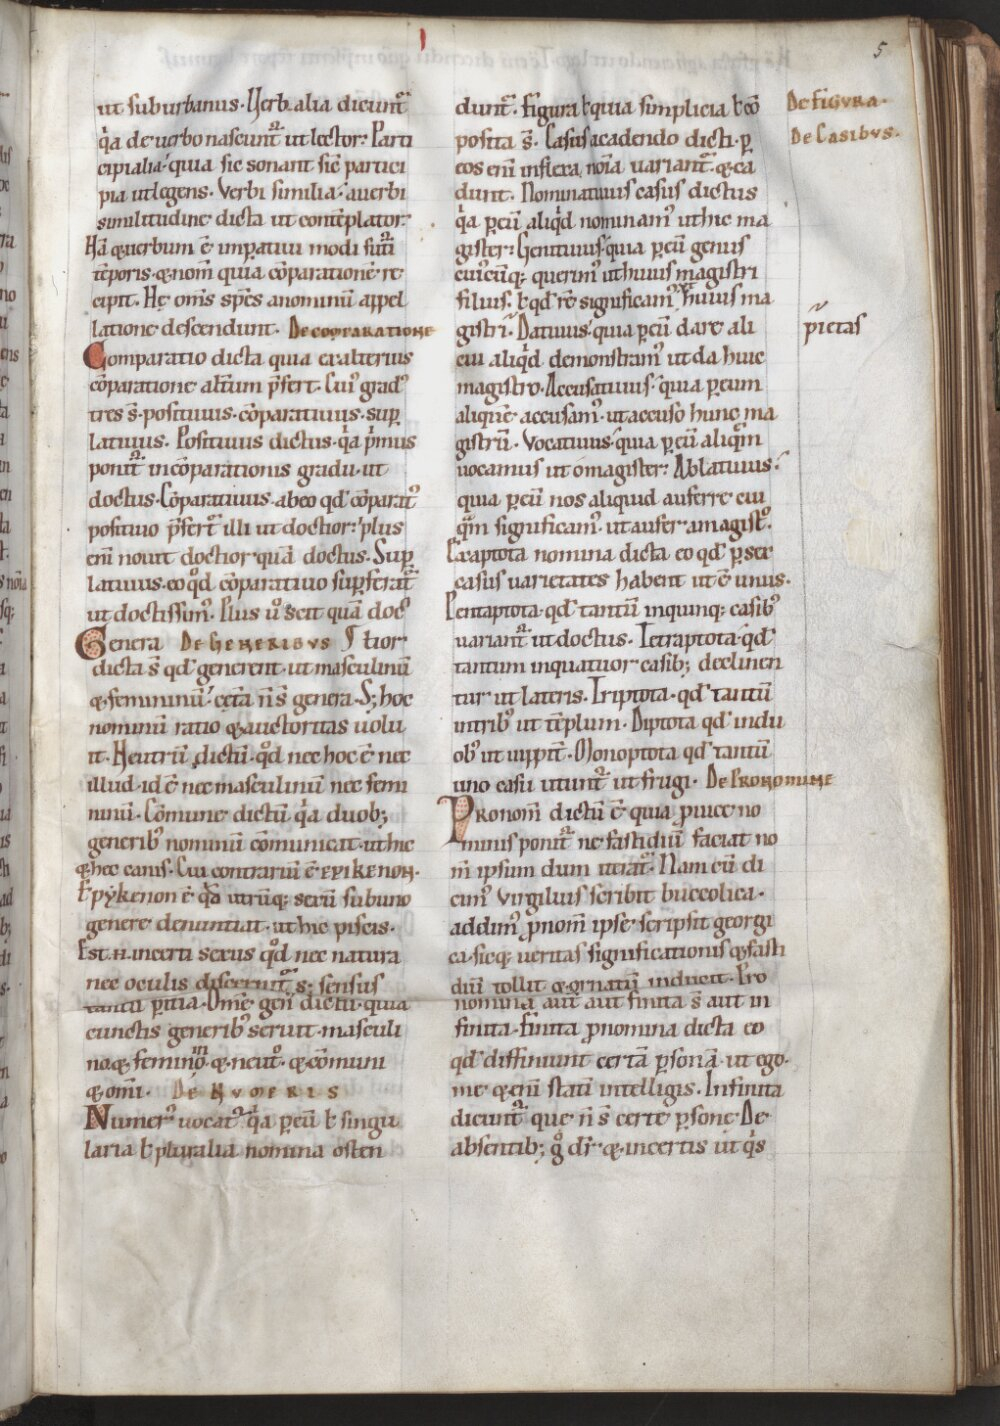 5
ut suburbanus. Verb alia dicunt᷑
q̓a de uerbo nascunt᷑ ut lector. Parti
cipialia quia sic sonant sic̄ partici
pia ut legens. Verbi similia. a uerbi
similitudine dicta ut contēplator.
Nā ⁊ uerbum ē imp̱atiui modi futuri
tēporis. ⁊ nom̄ quia cōparationē re
cipit. Hę om̄s spēs a nominū appel
latione descendunt. DE COMPARATIONE
Comparatio dicta quia ex alterius
cōparatione alt̄um p̄fert. Cui᷒ grad᷒
tres s̄. positiuus. cōparatiuus. sup̱
latiuus. Positiuus dictus. q̓a p̓mus
ponit᷑ in cōparationis gradu. ut
doctus. Cōparatiuus. ab eo qd̄ cōparat᷒
positiuo p̄fert᷑ illi ut doctior: plus
eni̅ nouit doctior quā doctus. Sup̱
latiuus. eo qd̄ cōparatiuo sup̱ferat᷑
ut doctissim᷒. Plus u̓ scit quā doc
Genera DE GENERIBVS tior
dicta s̄ qd̄ generent. ut masculinū
⁊ femininū. cet̄a n̄ s̄ genera. S; hoc
nominū ratio ⁊ auctoritas uolu
it. Neutrū dictū. qd̄ nec hoc ē nec
illud. id ē nec masculinū nec femi
ninū. Cōmune dictū q̓a duob;
generib᷒ nominū cōmunicat. ut hic
⁊ hec canis. Cui contrariū ē EPIKENON.
Epykenon ē q̓a utrūq; sexū sub uno
genere denuntiat. ut hic piscis.
Est .n. incerti sexus qd̄ nec natura
nec oculis discernit᷑ s; sensus
tantū p̱itia. Om̄e gen᷒ dictū. quia
cunctis generib᷒ seruit. masculi
no. ⁊ feminino. ⁊ neut̓o. ⁊ cōmuni
⁊ omi. DE NVMERIS
Numer᷒ uocat᷑ q̓a p̱ eū ł singu
laria ł pluralia nomina osten
dunt᷑. Figura ł quia simplicia ł cō
posita s̄. Casus a cadendo dicti. p̱
eos eni̅ inflexa noīa uariant᷑. ⁊ ca
dunt. Nominatiuus casus dictus
q̓a p̱ eū aliq̓d nominam᷒ ut hic ma
gister. Genitiuus. quia p̱ eū genus
cui᷒cūq; querim᷒ ut huius magistri
filius. ł qd̄ rē significam᷒ ut huius ma
gistri. Datiuus. quia p̱ eū dare ali
cui aliq̓d demonstram᷒ ut da huic
magistro. Accusatiuus. quia p̱ eum
aliquē accusam᷒. ut accuso hunc ma
gistrū. Vocatiuus. quia p̱ eū aliquē
uocamus ut o magister. Ablatiuus.
quia p̱ eū nos aliquid auferre cui
q̓m significam᷒. ut aufer a magist̓o.
Exaptota nomina dicta eo qd̄ p̱ sex
casus uarietates habent ut ē unus.
Pentaptota. qd̄ tantū in quinq; casib᷒
uariant᷑ ut doctus. Tetraptota. qd̄
tantum in quatuor casib; declinen
tur ut lateris. Triptota. qd̄ tantū
in trib᷒ ut tēplum. Diptota qd̄ in du
ob᷒ ut iuppit̄. Monoptota qd̄ tantū
uno casu utunt᷑ ut frugi. DE PRONOMINE
PRonom̄ dictū ē quia p̱ uice no
minis ponit᷑ ne fastidiū faciat no
m̄ ipsum dum iterat᷑. Nam cū di
cim᷒ uirgilius scribit buccolica.
addim᷒ p̱nom̄ ipse scripsit georgi
ca. sicq; ueritas significationis ⁊ fasti
diū tollit ⁊ ornatū inducit. Pro
nomina aut aut finita s̄ aut in
finita. Finita p̱nomina dicta eo
qd̄ diffiniunt certā p̱sonā. ut ego.
me ⁊ eni̅ statī intelligis. Infinita
dicunt᷑ que n̄ s̄ certe p̱sonę De
absentib; g̊ dr̄ ⁊ incertis ut q̓s
DE FIGVRA.
DE CASIBVS.
p̄ietas